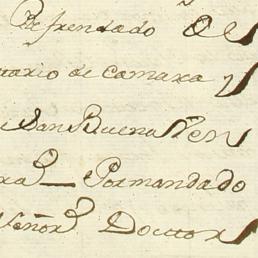 Refrendado De
tario de Camara y
San Buena Ven
ra — Pormandado
Señor Doctor